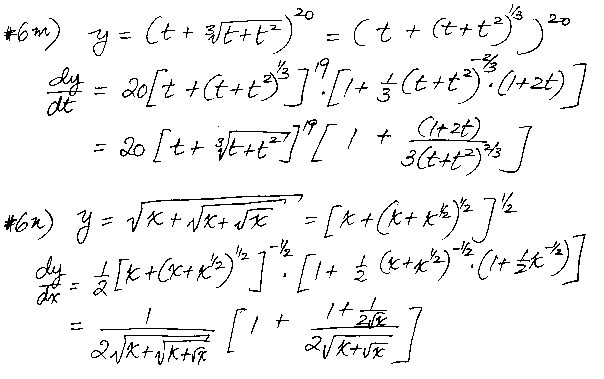 #6m) y = (t + ∛(t+t²))²⁰ = (t + (t+t²)^(1/3))²⁰
dy/dt = 20[t + (t+t²)^(1/3)]¹⁹ · [1 + 1/3 (t+t²)^(-2/3) · (1+2t)]
= 20[t + ∛(t+t²)]¹⁹ [1 + (1+2t)/(3(t+t²)^(2/3))]
#6n) y = √(x + √(x + √x)) = [x + (x + x^(1/2))^(1/2)]^(1/2)
dy/dx = 1/2 [x + (x + x^(1/2))^(1/2)]^(-1/2) · [1 + 1/2 (x + x^(1/2))^(-1/2) · (1 + 1/2 x^(-1/2))]
= 1/(2√(x + √(x + √x))) [1 + (1 + 1/(2√x))/(2√(x + √x))]